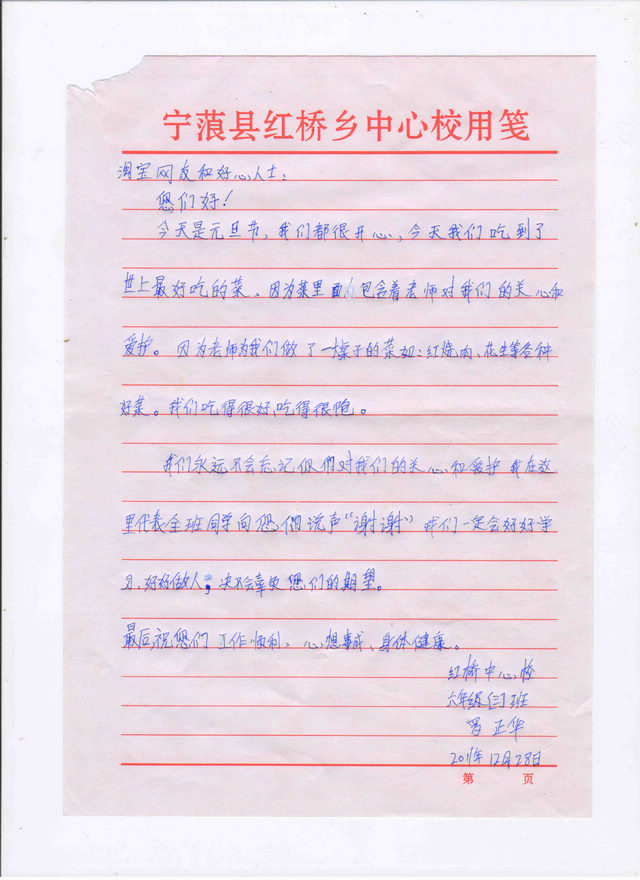 宁蒗县红桥乡中心校用笺
淘宝网友和好心人士:
您们好!
今天是元旦节,我们都很开心,今天我们吃到了
世上最好吃的菜、因为菜里包含着老师对我们的关心和
爱护。因为老师为我们做了一桌子的菜如:红烧肉、花生等各种
好菜。我们吃得很好,吃得很饱。
我们永远不会忘记你们对我们的关心和爱护 我在这
里代表全班同学向您们说声“谢谢”我们一定会好好学
习,好好做人,决不会辜负您们的期望。
最后,祝您们工作顺利、心想事成、身体健康。
红桥中心校
六年级(三)班
罗正华
2011年12月28日
第 页